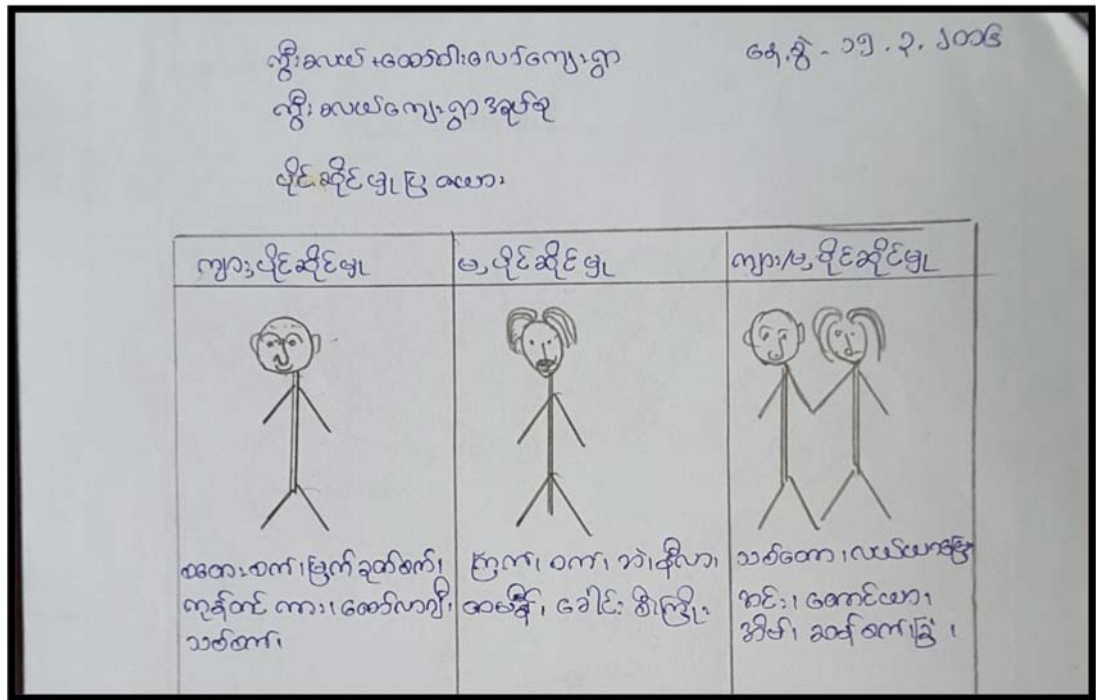 ကွီးလယ် +တော်ဝါးလော်ကျေးရွာ
နေ့စွဲ - ၁၅.၃.၂၀၁၆
ကွီးလယ်ကျေးရွာအုပ်စု
ပိုင်ဆိုင်မှုပြဇယား
ကျား ပိုင်ဆိုင်မှု
မ ပိုင်ဆိုင်မှု
ကျား/မ ပိုင်ဆိုင်မှု
စတေးစက်၊ မြက်ခုတ်စက်၊
ကုန်တင်ကား၊ ထော်လာဂျီ၊
သစ်စက်၊
ကြက်၊ ဝက်၊ ဘဲ၊ နီလာ၊
ထမိန်၊ ခေါင်းစီးကြိုး
သစ်တော၊ လယ်ယာမြေ
ဆင်း၊ တောင်ယာ၊
အိမ်၊ ဆန်စက်၊ ခြံ၊